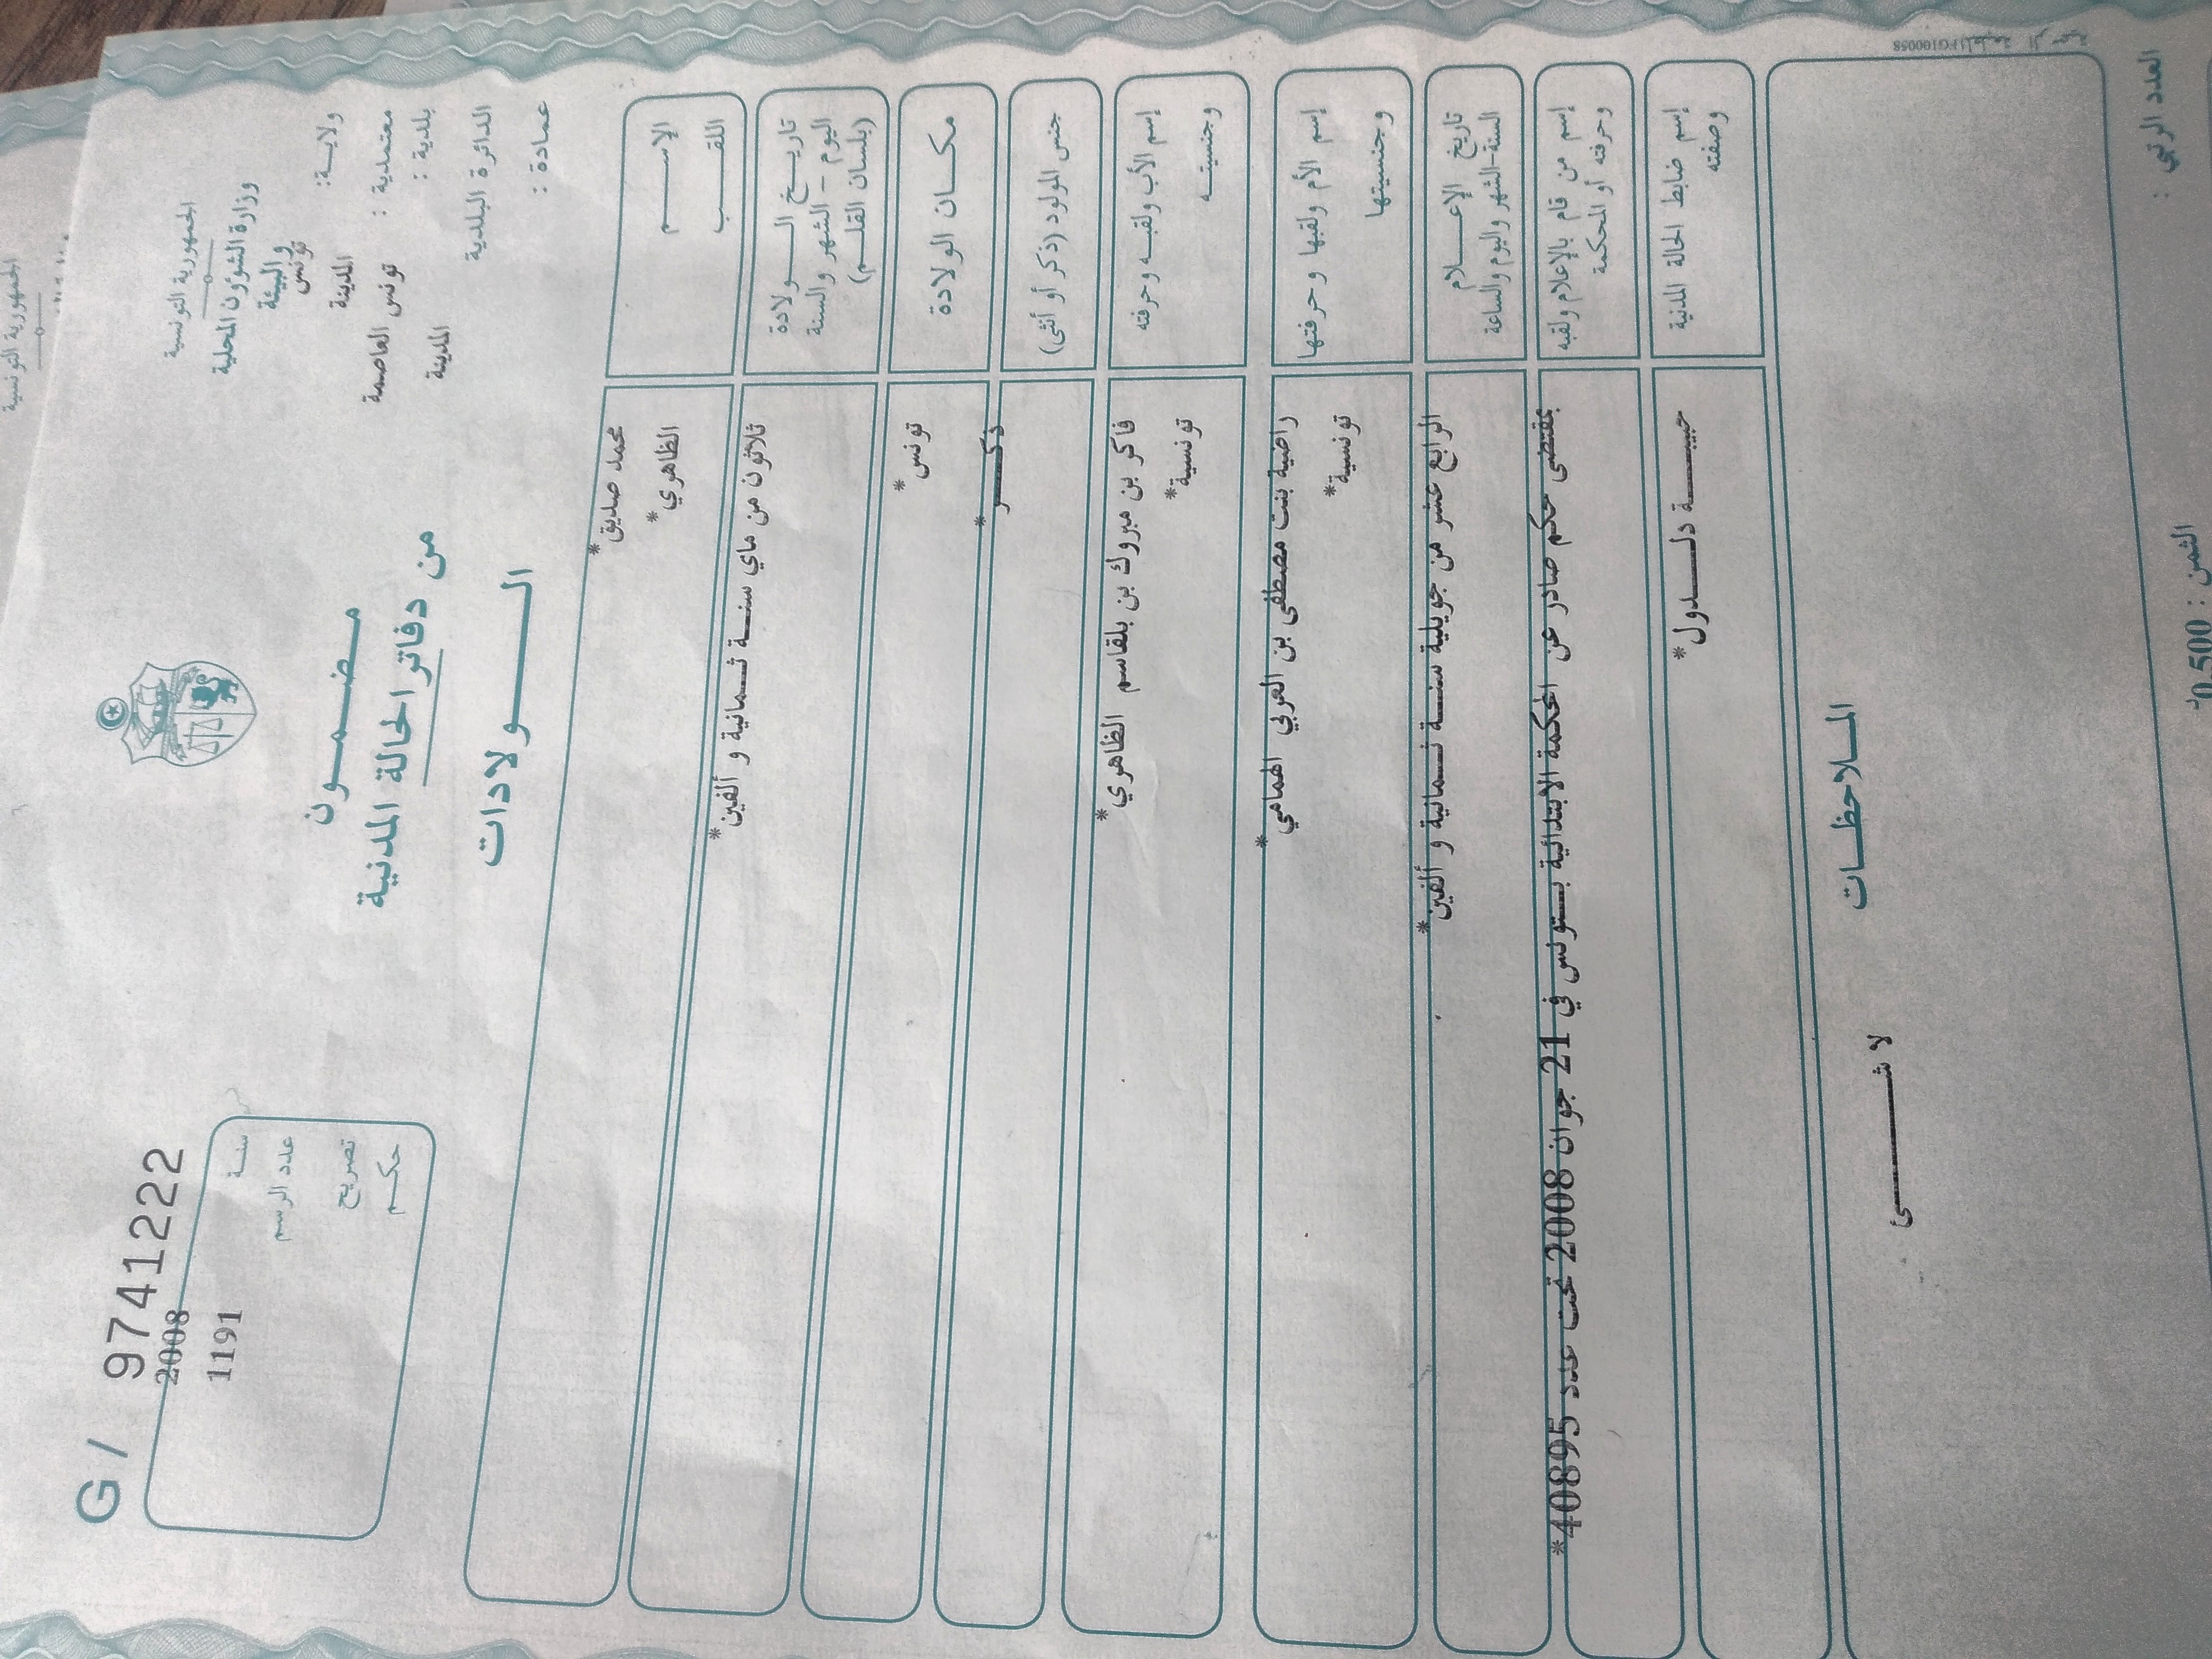 الجمهورية التونسية
وزارة الشؤون المحلية
والبيئة
ولاية: تونس
معتمدية : المدينة
بلدية : تونس العاصمة
الدائرة البلدية المدينة
عمادة :
مضمون
من دفاتر الحالة المدنية
الولادات
G/ 9741222
سنة 2008
عدد الرسم 1191
تصريح
حكم
الإسم محمد صديق*
اللقب الظاهري*
تاريخ الولادة ثلاثون من ماي سنة ثمانية و ألفين*
اليوم - الشهر والسنة
(بلسان القلم)
مكان الولادة تونس*
جنس المولود (ذكر أو أنثى) ذكر*
إسم الأب ولقبه وحرفته فاكر بن مبروك بن بلقاسم الظاهري*
وجنسيته تونسية*
إسم الأم ولقبها وحرفتها راضية بنت مصطفى بن العربي الهمامي*
وجنسيتها تونسية*
تاريخ الإعلام الرابع عشر من جويلية سنة ثمانية و ألفين*
السنة-الشهر واليوم والساعة
إسم من قام بالإعلام ولقبه بمقتضى حكم صادر عن المحكمة الابتدائية بتونس في 21 جوان 2008 تحت عدد 40895*
وحرفته أو المحكمة
إسم ضابط الحالة المدنية حبيبة دلدول*
وصفته
الملاحظات
لا شئ
المطبعة الرسمية FG100058
العدد الرتبي :
الثمن : 0,500د
الجمهورية التونسية